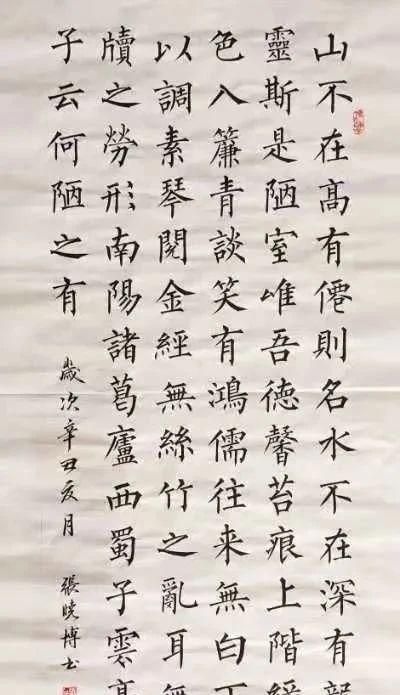 山不在高有僊則名水不在深有
靈斯是陋室唯吾徳馨苔痕上階
色入簾青談笑有鴻儒往来無白丁
以調素琴閱金經無絲竹之亂耳無
牘之勞形南陽諸葛廬西蜀子雲亭
子云何陋之有
歲次辛丑夏月 張曉博书